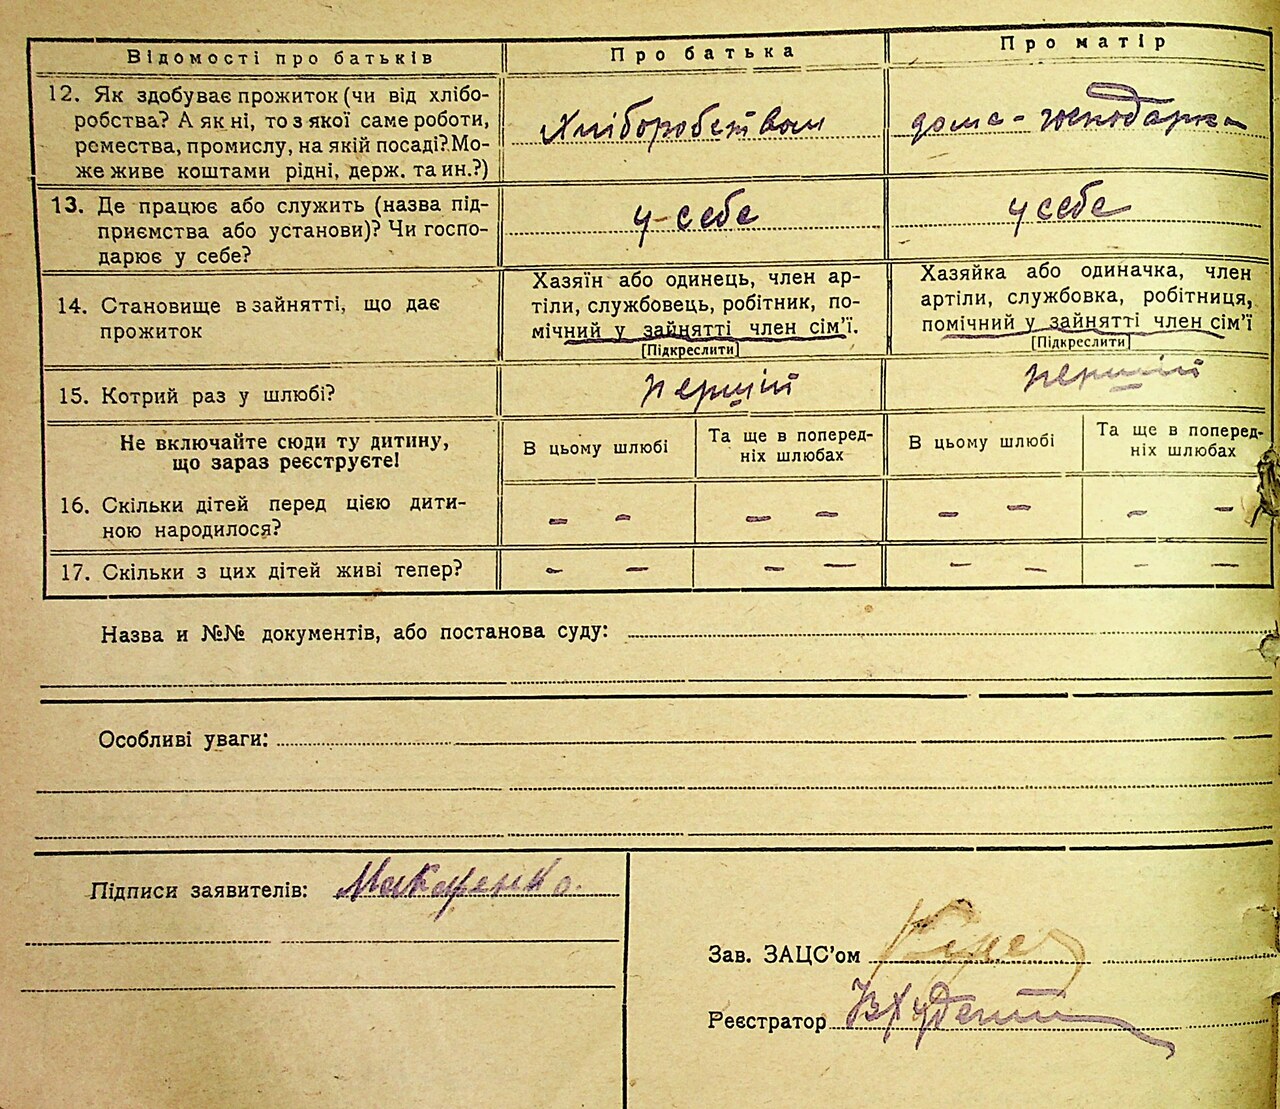 Відомості про батьків
Про батька
Про матір
12. Як здобуває прожиток (чи від хлібо-
робства? А як ні, то з якої саме роботи,
ремества, промислу, на якій посаді? Мо-
же живе коштами рідні, держ. та ин.?)
Хліборобством
дома-
13. Де працює або служить (назва під-
приємства або установи)? Чи госпо-
дарює у себе?
у себе
у себе
14. Становище в зайнятті, що дає
прожиток
Хазяїн або одинець, член ар-
тіли, службовець, робітник, по-
мічний у зайнятті член сім’ї.
[Підкреслити]
Хазяйка або одиначка, член
артіли, службовка, робітниця,
помічний у зайнятті член сім’ї
[Підкреслити]
15. Котрий раз у шлюбі?
перший
перший
Не включайте сюди ту дитину,
що зараз реєструєте!
В цьому шлюбі
Та ще в поперед-
ніх шлюбах
В цьому шлюбі
Та ще в поперед-
ніх шлюбах
16. Скільки дітей перед цією дити-
ною народилося?
– – – – – – – –
17. Скільки з цих дітей живі тепер?
– – – – – – – –
Назва и №№ документів, або постанова суду:
Особливі уваги:
Підписи заявителів: Макаренко.
Зав. ЗАЦС’ом
Реєстратор